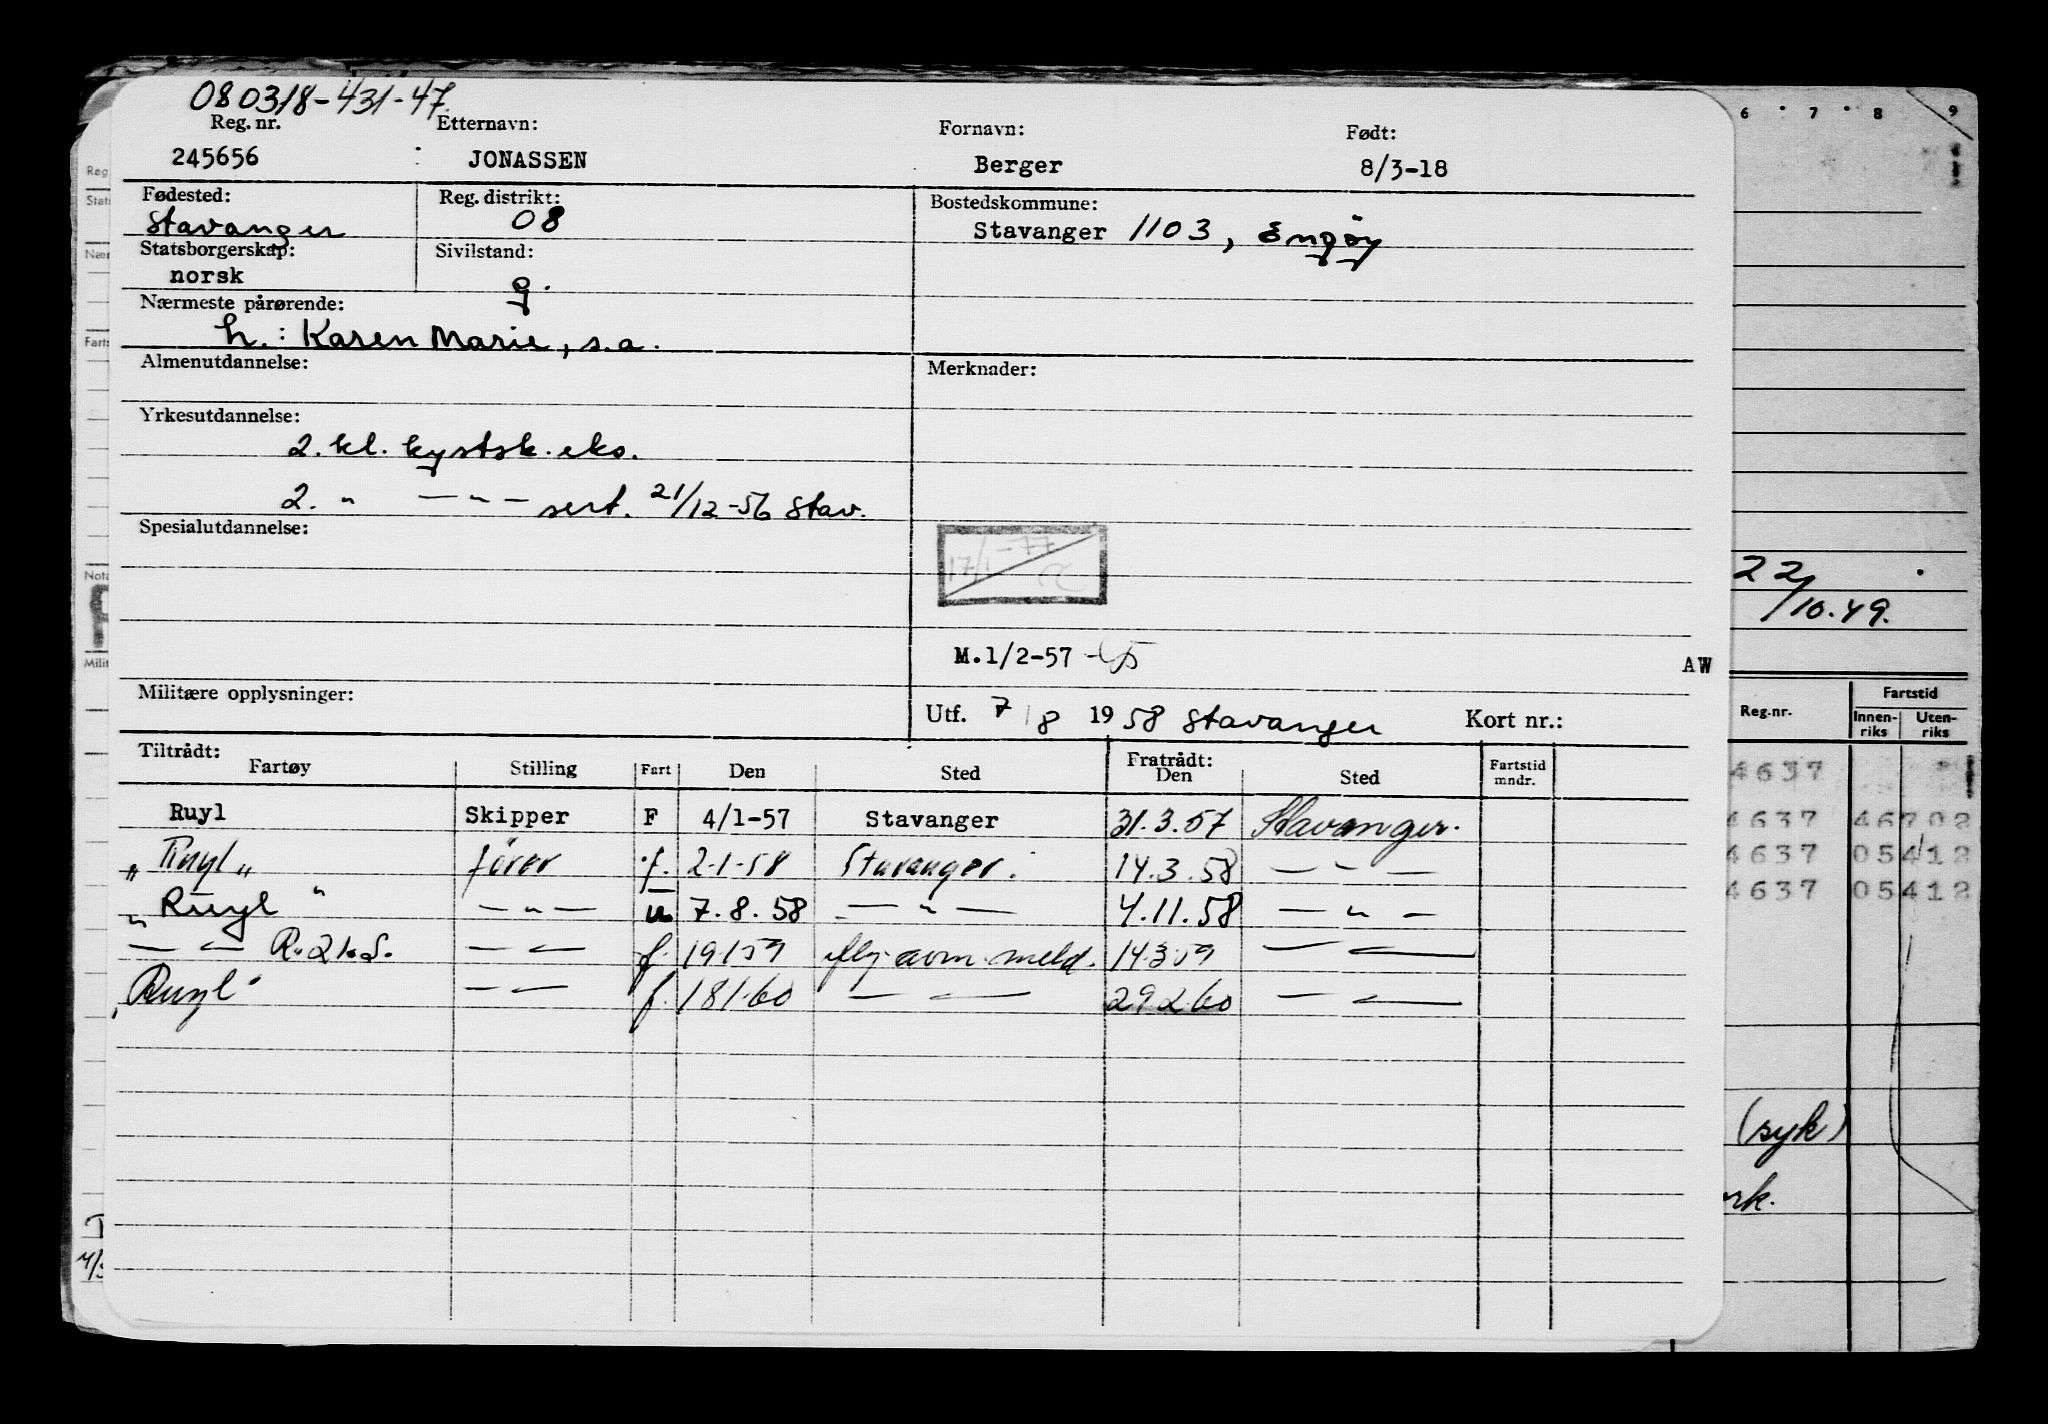 080318-431-47
Reg. nr. Etternavn: Fornavn: Født:
245656 JONASSEN Berger 8/3-18
Fødested: Reg. distrikt: Bostedskommune:
Stavanger 08 Stavanger 1103, Engøy
Statsborgerskap: Sivilstand:
norsk g.
Nærmeste pårørende:
h.: Karen Marie, s.a.
Almenutdannelse: Merknader:
Yrkesutdannelse:
2. kl. kystsk. eks.
2. " — " — sert. 21/12-56 Stav.
Spesialutdannelse:
17/1-77
M.1/2-57 AW
Militære opplysninger:
Utf. 7/8 1958 Stavanger Kort nr.:
Tiltrådt: Fratrådt:
Fartøy Stilling Fart Den Sted Den Sted Fartstid mndr.
Ruyl Skipper F 4/1-57 Stavanger 31.3.57 Stavanger.
"Ruyl" fører f. 2-1-58 Stavanger. 14.3.58 — " —
"Ruyl" — " — u 7.8.58 — " — 4.11.58 — " —
— " — R.21.S. — " — f. 19159 iflg. avm. meld. 14.3.59 — " —
"Ruyl" — " — f. 181.60 — " — 29.2.60 — " —
6 7 8 9
22/10.49.
Reg.nr. Fartstid
Innenriks Utenriks
4637
4637 46702
4637 05412
4637 05412
(syk)